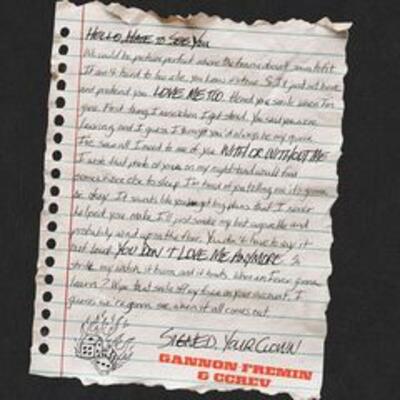 HELLO, HATE TO SEE YOU
We could be picture perfect where the frame doesn't
It ain't hard to low else, you know it's true. So I'll
and pretend you LOVE ME TOO. Heard you smile when I'm
gone. First thing I miss when I get stoned. You said you were
leaving and I guess I thought you'd always be my
I've seen all I need to see of you WITH OR WITHOUT ME
I wish that photo of you on my nightstand would find
somewhere else to sleep. I'm tired of you telling me it's gonna
be okay. It sounds like you got big plans that I never
helped you make. I'll just smoke my last cigarette and
probably wind up on the floor. You don't have to say it
out loud YOU DON'T LOVE ME ANYMORE. So
strike my match, it burns and it hurts. When am I ever gonna
learn? Wipe that smile off my face on your account. I
guess we're gonna see when it all comes out.
SIGNED, YOUR CLOWN
GANNON FREMIN
& CCREV